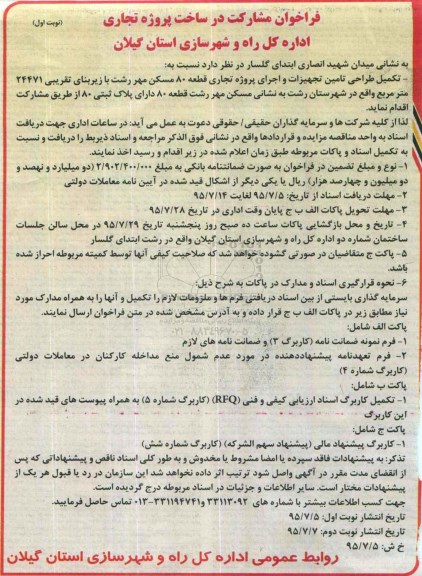 فراخوان مشارکت در ساخت پروژه تجاری
(نوبت اول)
اداره کل راه و شهرسازی استان گیلان
به نشانی میدان شهید انصاری ابتدای گلسار در نظر دارد نسبت به:
- تکمیل طراحی تامین تجهیزات و اجرای پروژه تجاری قطعه ۸۰ مسکن مهر رشت با زیربنای تقریبی ۲۴۴۷۱
متر مربع واقع در شهرستان رشت به نشانی مسکن مهر رشت قطعه ۸۰ دارای پلاک ثبتی ۸۰ از طریق مشارکت
اقدام نماید.
لذا از کلیه شرکت ها و سرمایه گذاران حقیقی/ حقوقی دعوت به عمل می آید: در ساعات اداری جهت دریافت
اسناد به واحد مناقصه مزایده و قراردادها واقع در نشانی فوق الذکر مراجعه و اسناد ذیربط را دریافت و نسبت
به تکمیل اسناد و پاکات مربوطه طبق زمان اعلام شده در زیر اقدام و رسید اخذ نمایند.
۱- نوع و مبلغ تضمین در فراخوان به صورت ضمانتنامه بانکی به مبلغ ۲/۹۰۲/۴۰۰/۰۰۰ (دو میلیارد و نهصد و
دو میلیون و چهارصد هزار) ریال یا یکی دیگر از اشکال قید شده در آیین نامه معاملات دولتی
۲- مهلت دریافت اسناد از تاریخ: ۹۵/۷/۵ لغایت ۹۵/۷/۱۴
۳- مهلت تحویل پاکات الف ب ج پایان وقت اداری در تاریخ ۹۵/۷/۲۸
۴- تاریخ و محل بازگشایی پاکات ساعت ده صبح روز پنجشنبه تاریخ ۹۵/۷/۲۹ در محل سالن جلسات
ساختمان شماره دو اداره کل راه و شهرسازی استان گیلان واقع در رشت ابتدای گلسار
۵- پاکت ج متقاضیان در صورتی گشوده خواهد شد که صلاحیت کیفی آنها توسط کمیته مربوطه احراز شده
باشد.
۶- نحوه قرارگیری اسناد و مدارک در پاکات به شرح ذیل:
سرمایه گذاری بایستی از بین اسناد دریافتی فرم ها و ملزومات لازم را تکمیل و آنها را به همراه مدارک مورد
نیاز مطابق زیر در پاکات الف ب ج قرار داده و به آدرس مشخص شده در متن فراخوان ارسال نمایند.
پاکت الف شامل:
۱- فرم نمونه ضمانت نامه (کاربرگ ۳) و ضمانت نامه های لازم
۲- فرم تعهدنامه پیشنهاددهنده در مورد عدم شمول منع مداخله کارکنان در معاملات دولتی
(کاربرگ شماره ۴)
پاکت ب شامل:
۱- تکمیل کاربرگ اسناد ارزیابی کیفی و فنی (RFQ) (کاربرگ شماره ۵) به همراه پیوست های قید شده در
این کاربرگ
پاکت ج شامل:
۱- کاربرگ پیشنهاد مالی (پیشنهاد سهم الشرکه) (کاربرگ شماره شش)
تذکر: به پیشنهادات فاقد سپرده یا امضا مشروط یا مخدوش و به طور کلی اسناد ناقص و پیشنهاداتی که پس
از انقضای مدت مقرر در آگهی واصل شود ترتیب اثر داده نخواهد شد این سازمان در رد یا قبول هر یک از
پیشنهادات مختار است. سایر اطلاعات و جزئیات در اسناد مربوطه درج گردیده است.
جهت کسب اطلاعات بیشتر با شماره های ۳۳۱۱۳۰۹۲ و ۳۳۱۱۹۴۷۴۱-۰۱۳ تماس حاصل فرمایید.
تاریخ انتشار نوبت اول: ۹۵/۷/۵
تاریخ انتشار نوبت دوم: ۹۵/۷/۷
خ ش: ۹۵/۷/۵
روابط عمومی اداره کل راه و شهرسازی استان گیلان